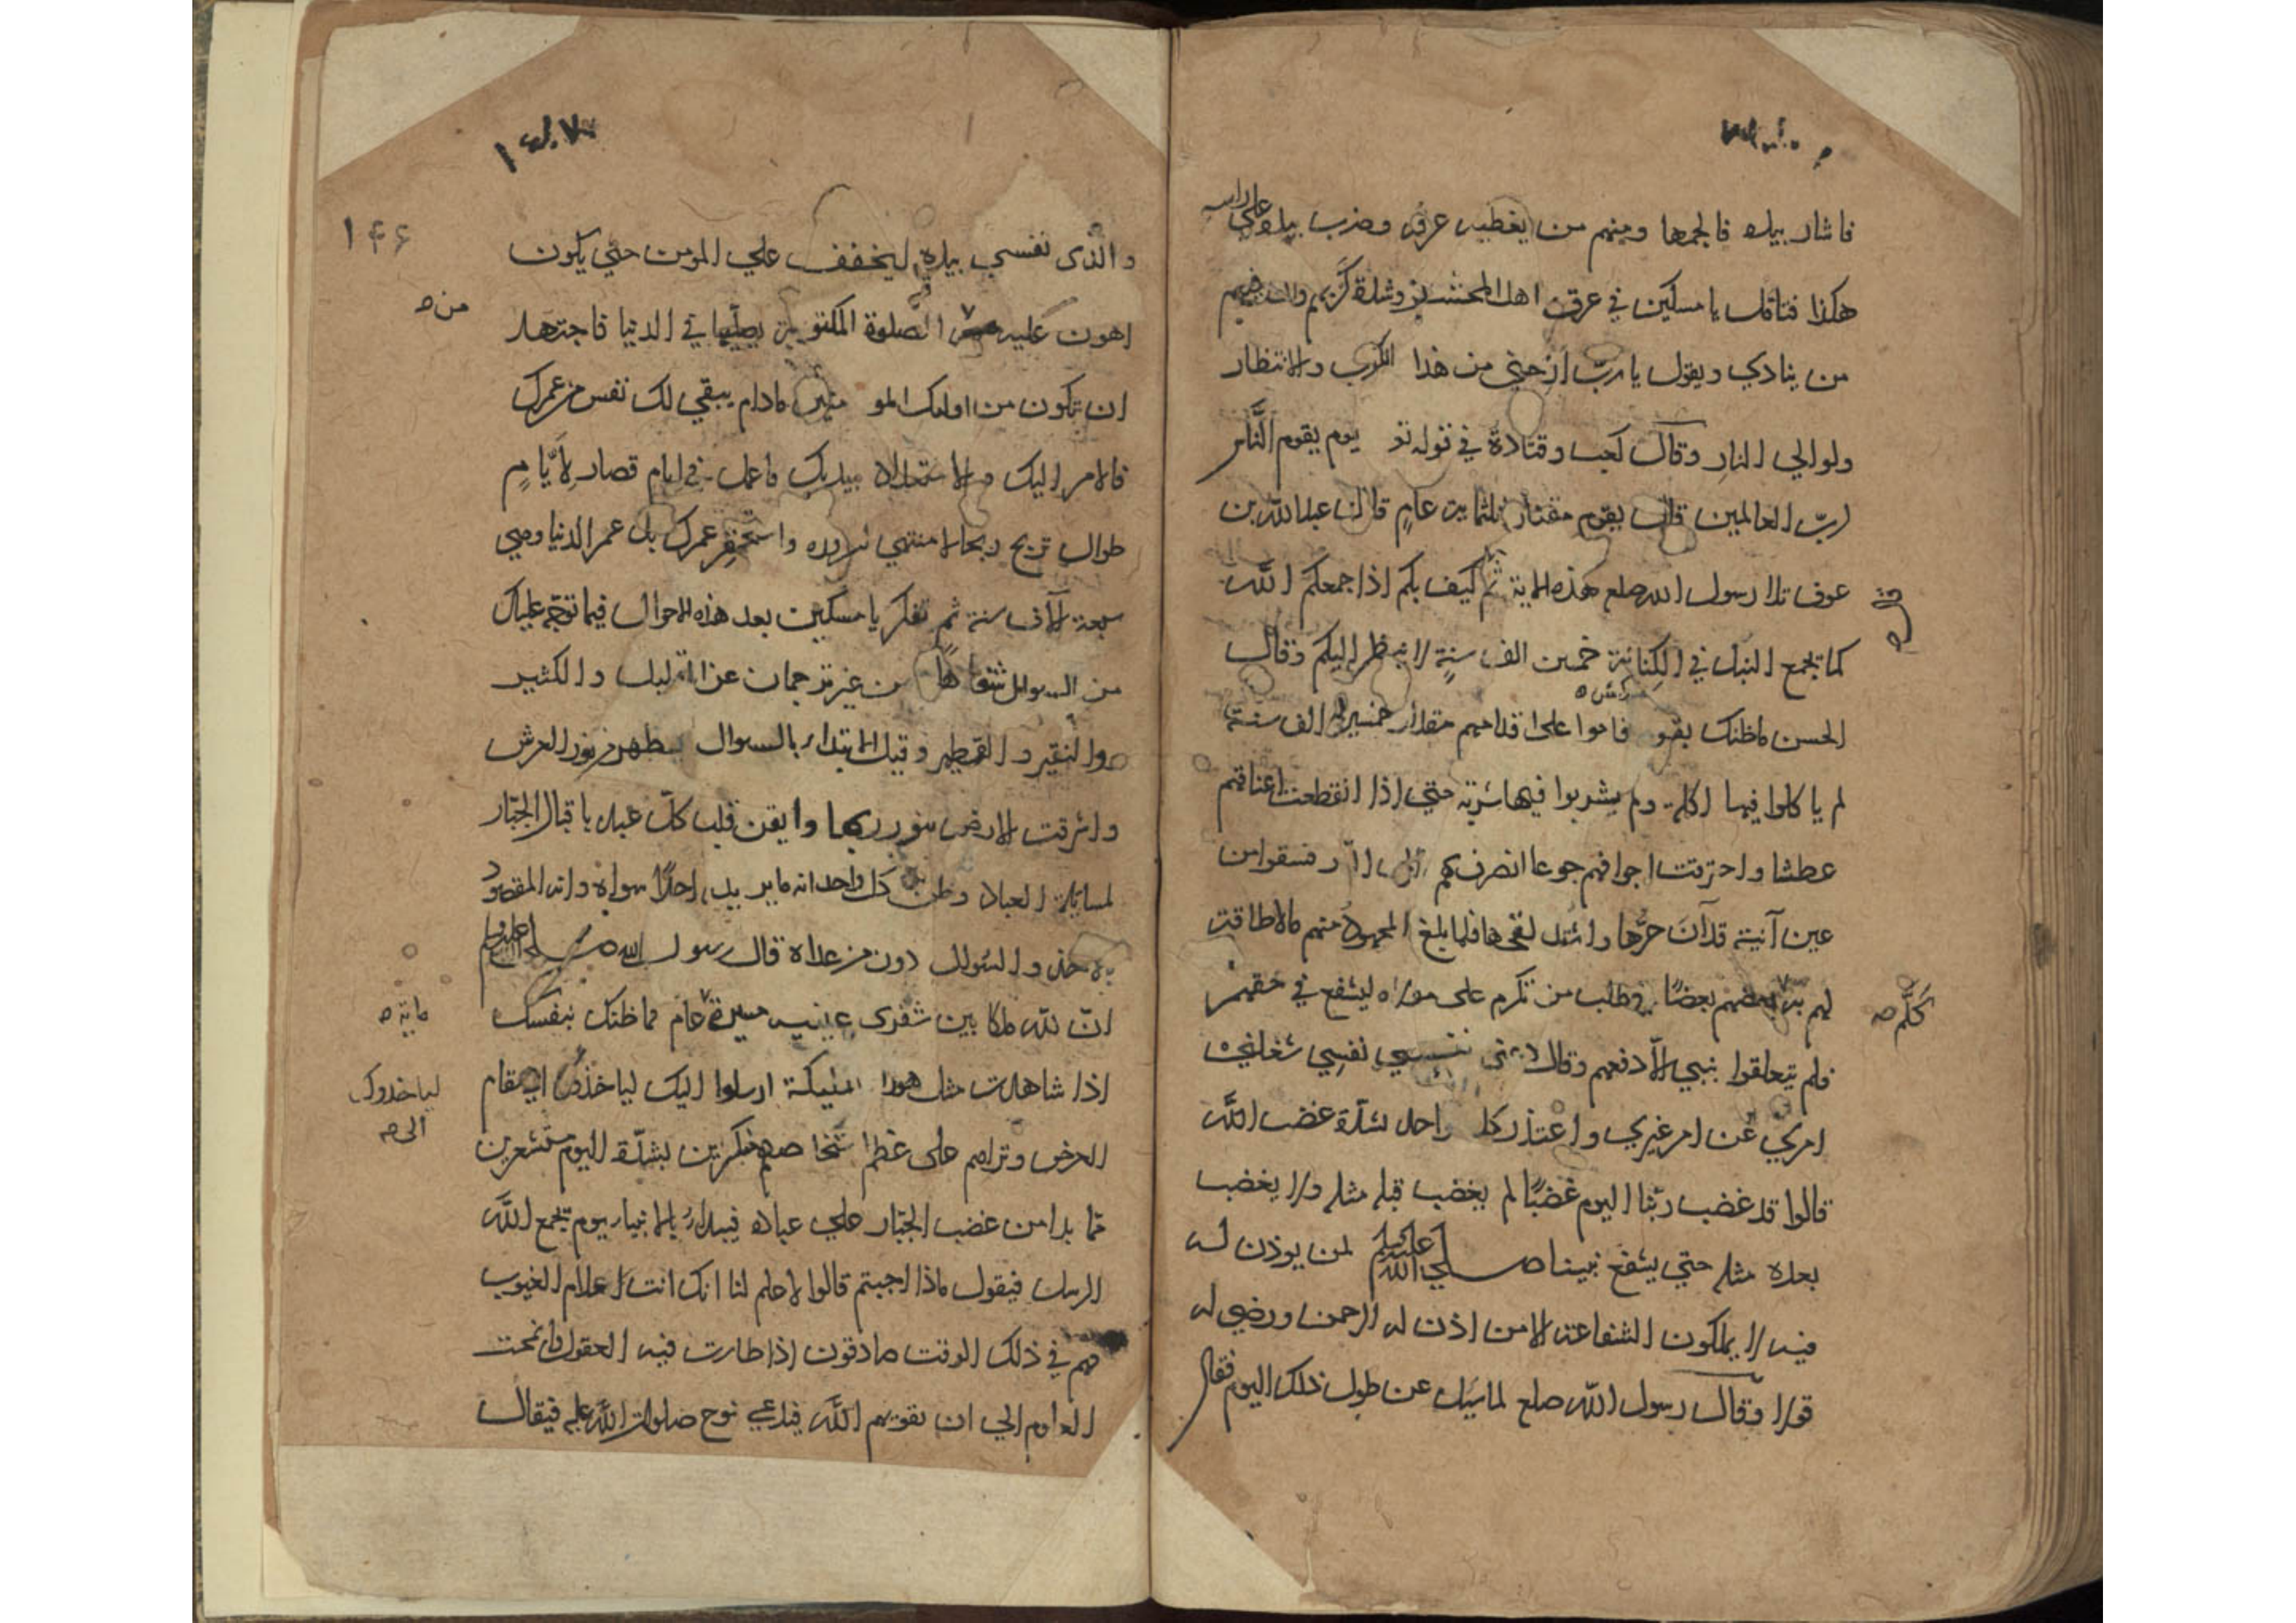 فاشار بيده فالجمها ومنهم من يغطيه عرقه وضرب بيده على راسه
هكذا فتامل يا مسكين في عرق اهل المحشر وشدة كربهم وان فيهم
من ينادي ويقول يا ربّ ارحني من هذا الكرب والانتظار
ولو الي النار وقال كعب وقتادة في قوله تع يوم يقوم النَّاس
لربّ العالمين قال يقوم مقدار ثلثماية عامٍ قال عبد الله بن
عوف تلا رسول الله صلعم هذه الاية ثم كيف بكم اذا جمعكم اللَّه
كما تجمع النبل في الكِنانة خمسين الف سنةٍ لا ينظر اليكم وقال
الحسن ما ظنك بقوم قاموا على اقدامهم مقدار خمسين الف سنة
لم ياكلوا فيها اكلة ولم يشربوا فيها شربة حتي اذا انقطعت اعناقهم
عطشا واحترقت اجوافهم جوعا انصرف بهم الى النار فسقوا من
عين آنية قد آن حرُّها واشتد لفحها فلما بلغ المجهود منهم ما لا طاقة
لهم به كلَّم بعضهم بعضًا في طلب من تكرم على مولاه ليشفع في حقهم
فلم يتعلقوا بنبي الّا دفعهم وقال دعوني نفسي نفسِي شغلني
امري عن امر غيري واعتذر كل واحد بشدّة غضب اللَّه
قالوا قد غضب ربّنا اليوم غضبًا لم يغضب قبله مثله ولا يغضب
بعده مثله حتي يشفع نبينا صلي الله عليه وسلم لمن يوذن له
فيه لا يملكون الشفاعة الا من اذن له الرحمن ورضي له
قولا وقال رسول اللّه صلعم لما سئل عن طول ذلك اليوم فقال
١٤٦
والّذى نفسي بيده ليخفف علي المومن حتي يكون
اهون عليه من الصلوة المكتوبة يصلّيها في الدنيا فاجتهد
من صـ
ان تكون من اولئك المومنين مادام يبقي لك نفس من عمرك
فالامر اليك والاستعداد بيديك فاعمل في ايام قصار لِأَيَّامٍ
طوال تربح ربحا لا منتهي لسروره واستحقر عمرك بل عمر الدنيا وهي
سبعة آلاف سنة ثم تفكر يا مسكين بعد هذه الاحوال فيما توجّه عليك
من السوال شفاهًا من غير ترجمان عن القليل والكثير
والنقير والقطمير وقبل الابتداء بالسوال يظهر نور العرش
واشرقت الارض بنور ربها وايقن قلب كلّ عبد باقبال الجبّار
لمسايلة العباد وظن كل واحد انه ما يريد احدًا سواه وانه المقصود
بالاخذ والسّوال دون من عداه قال رسول الله صلى الله عليه وسلم
انّ للّه ملكا بين شفرى عينيه مسيرة عام فما ظنك بنفسك
ماية صـ
اذا شاهدت مثل هولاء الملئكة ارسلوا اليك لياخذوك الى مقام
لياخذوك
الى صـ
العرض وتراهم على عظم اشخاصهم منكرين لشدّة اليوم مستشعرين
مما بدا من غضب الجبّار علي عباده فيبدا بالانبياء يوم يجمع اللَّه
الرسل فيقول ماذا اجبتم قالوا لا علم لنا انك انت علام الغيوب
فهم في ذلك الوقت صادقون اذا طارت فيه العقول وانمحت
العلوم الي ان يقويهم اللَّه فيدعي نوح صلوات اللَّه عليه فيقال